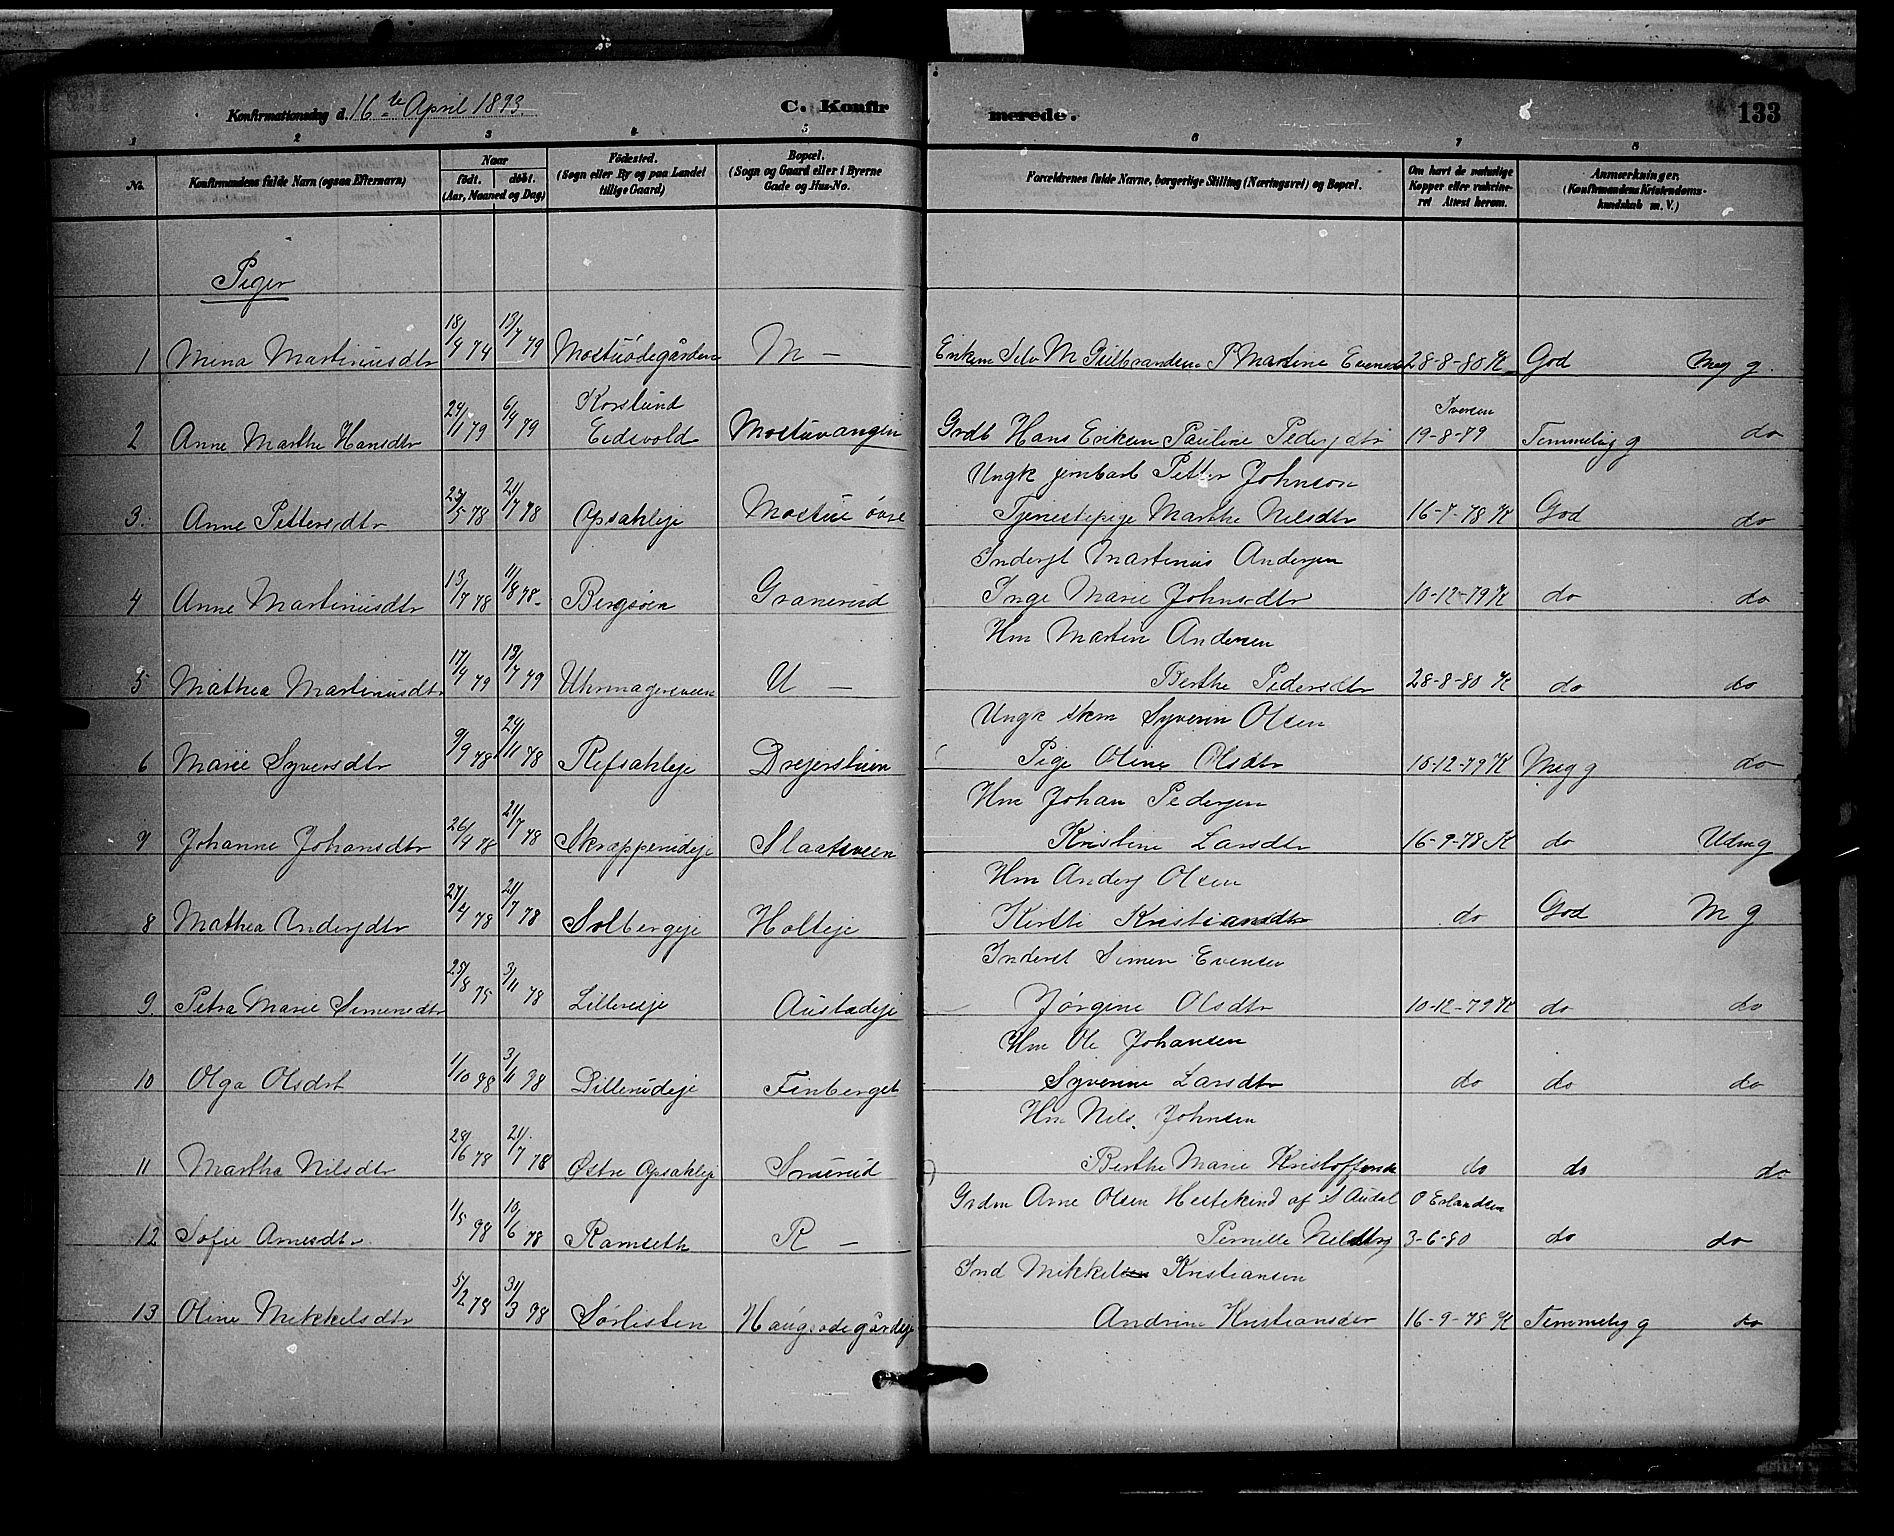 Konfirmationsdag d. 16te April 1893. C. Konfirmerede. 133
1 2 3 4 5 6 7 8
No. Konfirmandens fulde Navn (ogsaa Efternavn) Naar født. døbt. (Aar, Maaned og Dag) Fødested. (Sogn eller By og paa Landet tillige Gaard) Bopæl. (Sogn og Gaard eller i Byerne Gade og Hus-No. Forældrenes fulde Navne, borgerlige Stilling (Næringsvei) og Bopæl. Om havt de naturlige Kopper eller vakcineret Attest herom. Anmærkninger. (Konfirmandens Kristendomskundskab m. V.)
Piger
1 Mina Martinusdtr 13/7 79 Mostuødegården M — M Gulbrandsen Martine 28-8-80 K God Meg g.
Korslund Iversen
2 Anne Marthe Hansdtr 24/1 79 6/4 79 Eidsvold Mostuvangen Grdb Hans Eriksen Pauline Pedersdtr 19-8-79 Temmelig g do
Ungk jernbarb Petter Johnson
3. Anne Pettersdtr 23/5 78 21/7 78 Opsahleje Mostue övre Tjenestepige Marthe Nilsdtr 16-7-78 K God do
Inderst Martinus Andersen
4 Anne Martinusdtr 13/7 78 11/8 78 Bergsöen Granerud Inge Marie Johnsdtr 10-12-79 K do do
Hm Martin Andersen
5 Mathea Martinusdtr 17/4 79 13/7 79 Uhrmagersveen U — Berthe Pedersdtr 28-8-80 K do do
Ungk skm Syverin Olsen
6 Marie Syversdtr 9/9 78 24/11 78 Refsahleje Drejerstuen Pige Oline Olsdtr 10-12-79 K Meg g do
Hm Johan Pedersen
7 Johanne Johansdtr 26/4 78 21/7 78 Skrapperudeje Slaatsveen Kristine Larsdtr 16-9-78 K do Udm g
Hm Anders Olsen
8 Mathea Andersdtr 27/4 78 21/7 78 Solbergeje Holteje Kersti Kristiansdtr do God M g
Inderst Simen Evensen
9. Petra Marie Simensdtr 25/8 75 3/11 78 Austadeje Jørgene Olsdtr 10-12-79 K do do
Hm Ole Johansen
10 Olga Olsdt 1/10 78 3/11 78 Lillerudeje Finberget Syverine Larsdtr do do do
Hm Nils Johnsen
11 Martha Nilsdtr 28/6 78 21/7 78 Østre Opsahleje Snuerud Berthe Marie Kristoffersdt do do do
Grdm Arne Olsen Hestekind af S Aurdal O Erlandsen
12 Sofie Arnesdtr 1/5 78 10/6 78 Ramseth R — Pernille Nilsdtr 3-6-80 do do
Ind Mikkelsen Kristiansen
13 Oline Mikkelsdtr 5/2 78 31/3 78 Sørlisten Haugsødegårdeje Andrine Kristiansdtr 16-9-78 K Temmelig g do